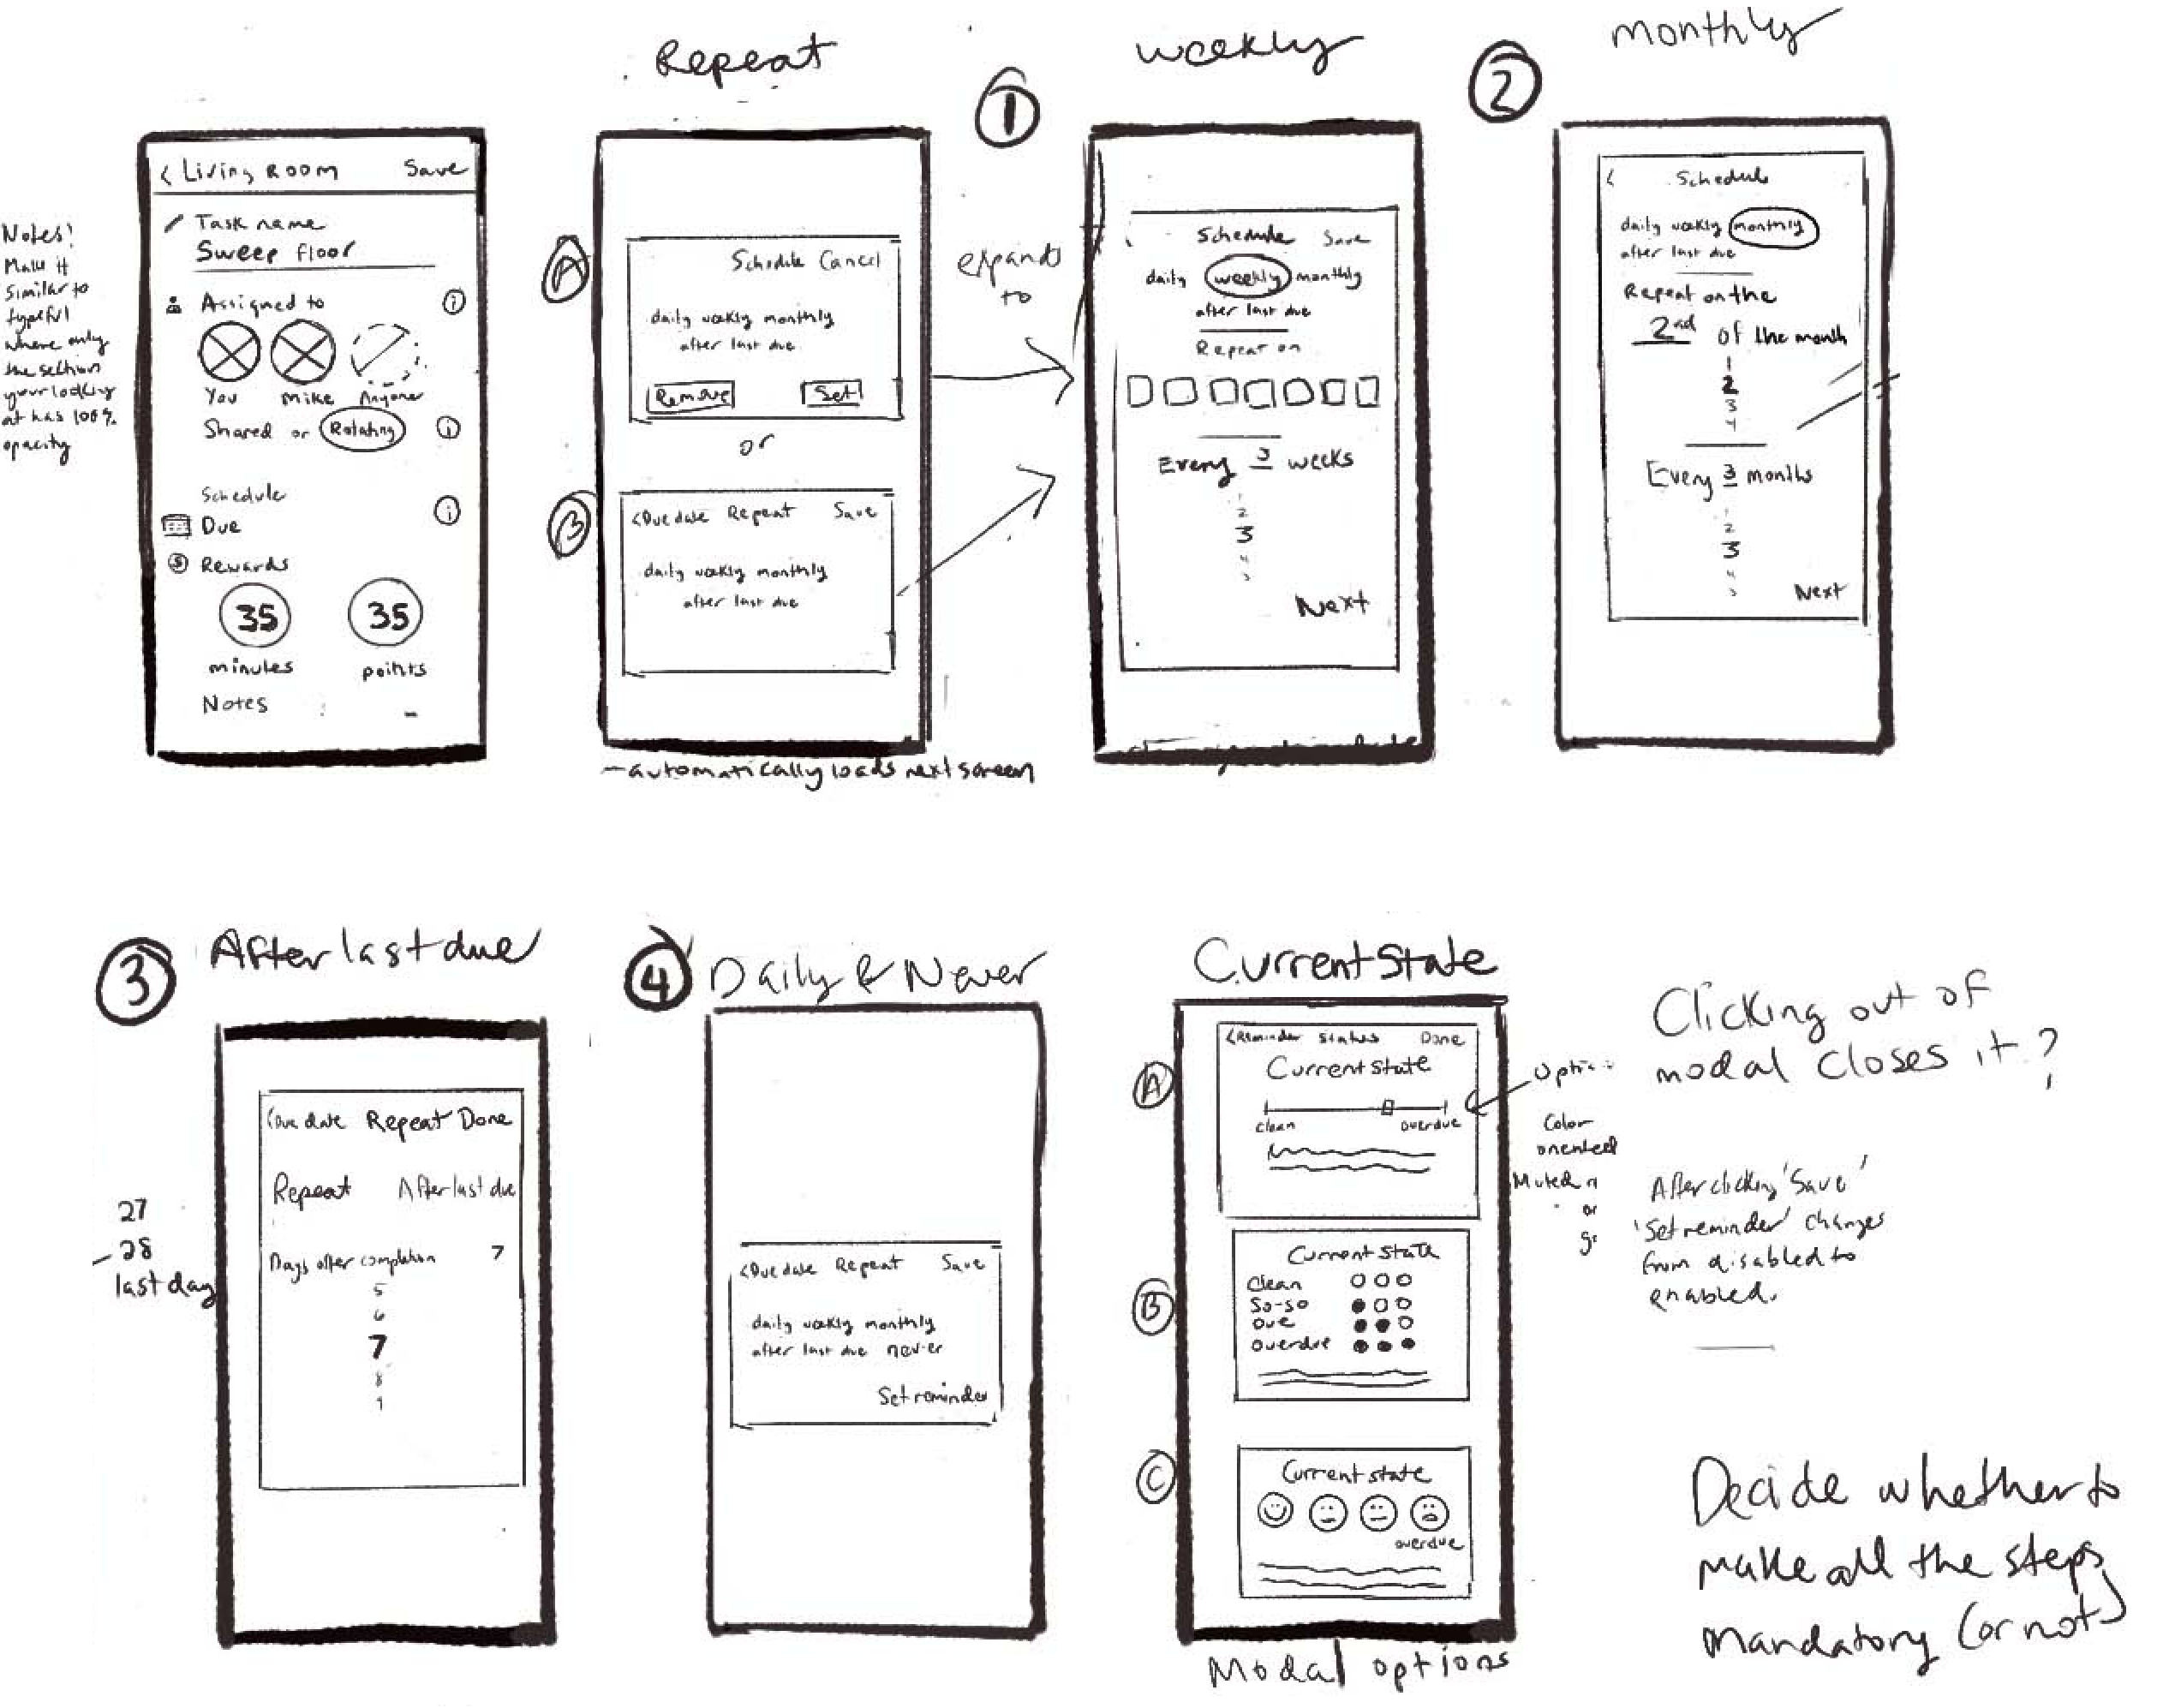 Repeat
①
weekly
②
monthly
Notes!
Make it
similar to
typeful
where only
the section
your looking
at has 100%
opacity
< Living Room Save
Task name
Sweep floor
Assigned to i
You Mike Anyone
Shared or Rotating i
Schedule
Due i
$ Rewards
35 35
minutes points
Notes
A
Schedule Cancel
daily weekly monthly
after last due
Remove Set
or
B
<Due date Repeat Save
daily weekly monthly
after last due
-automatically loads next screen
expands
to
Schedule Save
daily weekly monthly
after last due
Repeat on
Every 3 weeks
2
3
4
Next
< Schedule
daily weekly monthly
after last due
Repeat on the
2nd of the month
1
2
3
4
Every 3 months
1
2
3
4
Next
③ After last due
27
-28
last day
<Due date Repeat Done
Repeat After last due
Days after completion 7
5
6
7
8
9
④ Daily & Never
<Due date Repeat Save
daily weekly monthly
after last due never
Set reminder
Current State
A
<Reminder Status Done
Current State
clean overdue
B
Current State
Clean
So-so
Due
Overdue
C
Current state
overdue
Modal options
Color
oriented
Muted
or
Clicking out of
modal closes it?
After clicking 'Save'
'Set reminder' changes
from disabled to
enabled.
Decide whether to
make all the steps
mandatory (or not)